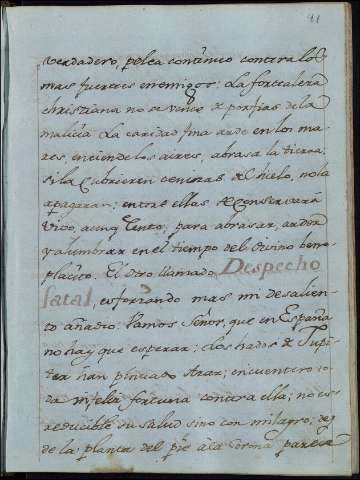 11
verdadero, pelea continuo contra los
mas fuertes enemigos: La fortaleza
christiana no se vence a porfias de la
malicia. La caridad fina arde en los ma-
res, enciende los aires, abrasa la tierra;
si la cubrieren cenizas de hielo, no la
apagaran; entre ellas se conservará
vivo, aunq. lento; para abrasar, arder
y alumbrar en el tiempo del divino bene-
placito. El otro llamado Despecho
fatal, esforzando mas mi desalien-
to añadio: Vamos Señor, que en España
no hay que esperar; los hados de Jupi-
ter han
da infeliz fortuna contra ella; no es
reducible su salud sino con milagro; deq.
de la planta del pie à la corona parece